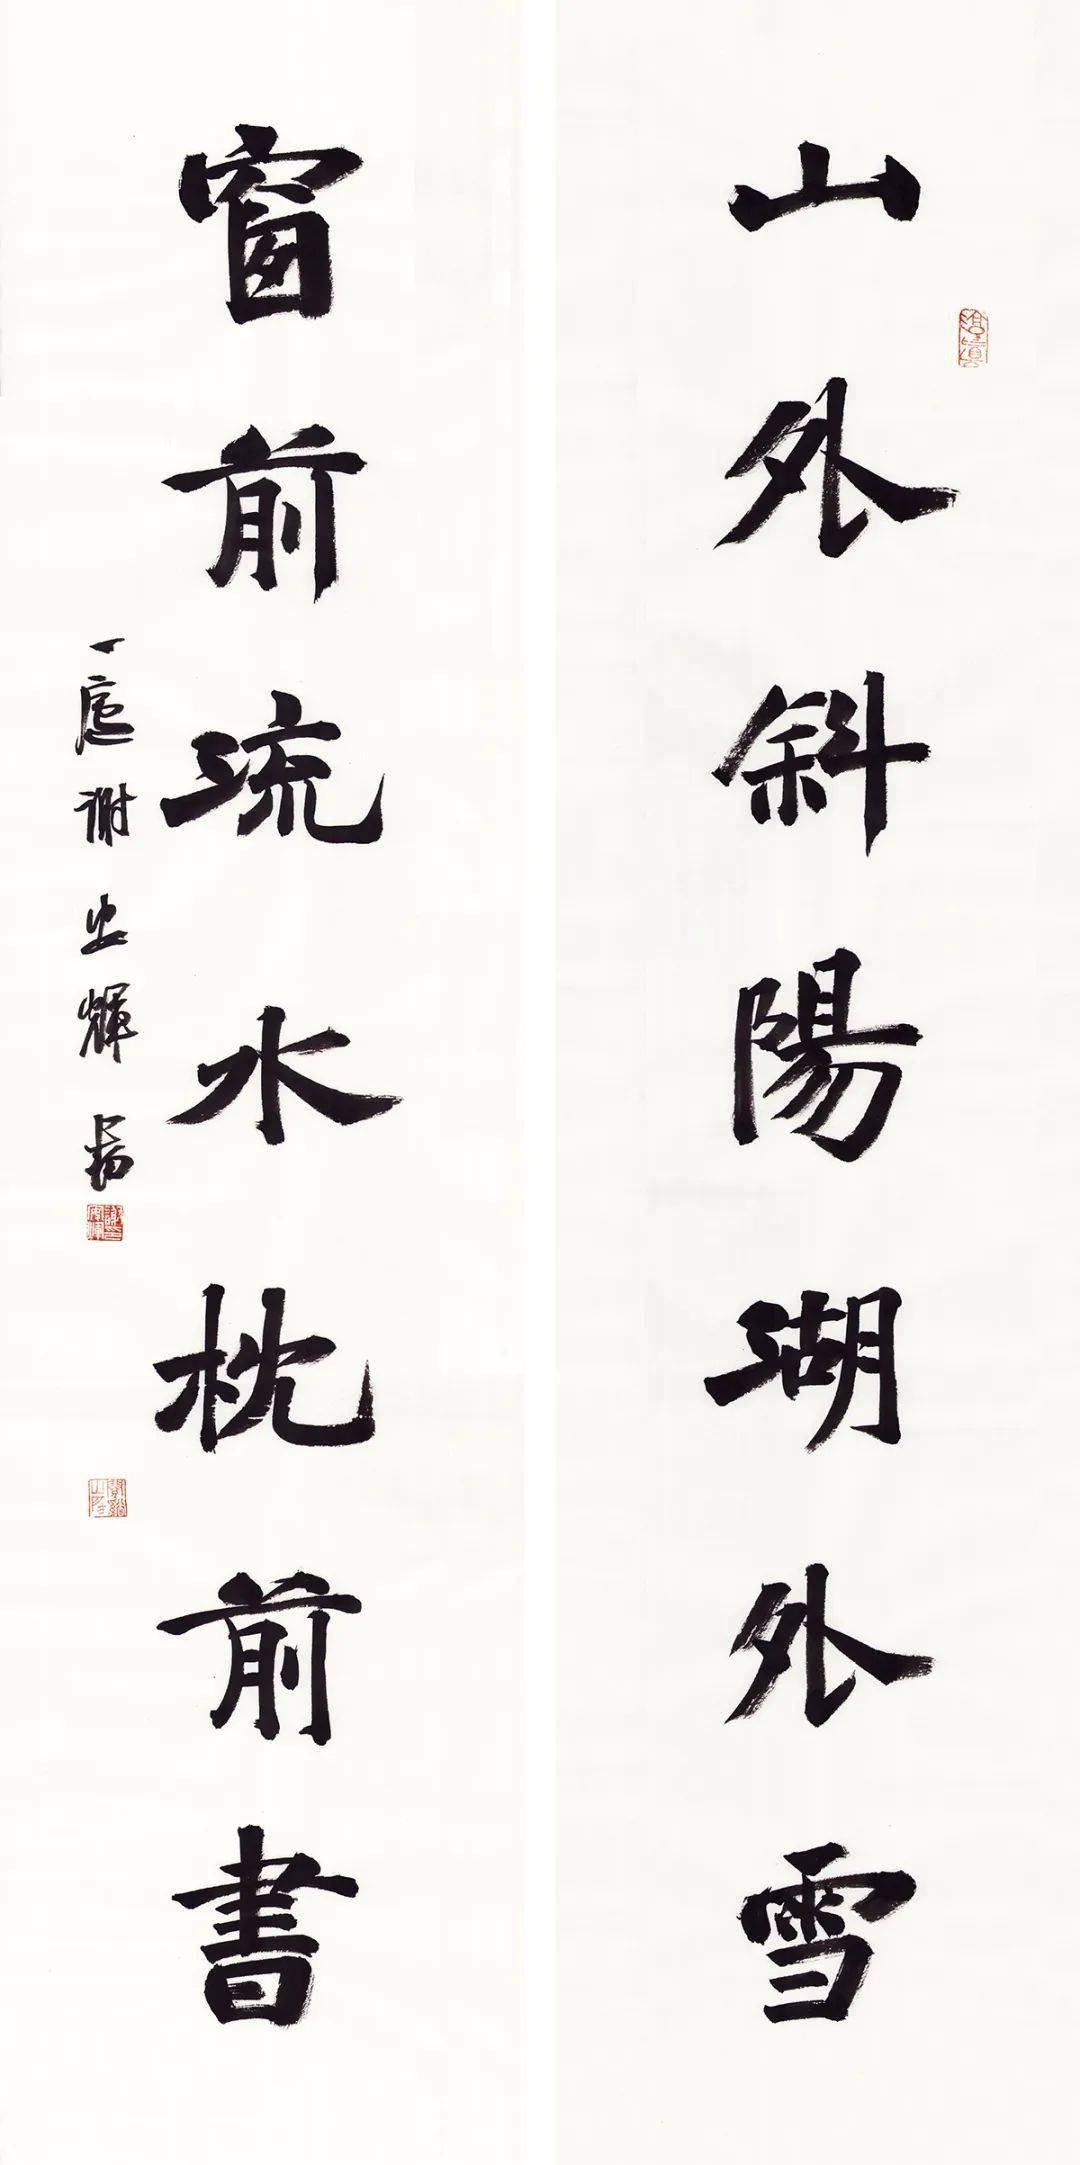 山外斜陽湖外雪
窗前流水枕前書
一廬謝安輝書